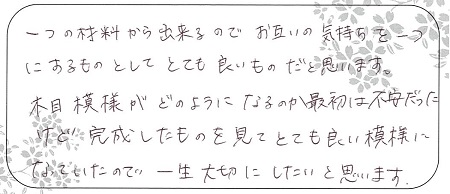 一つの材料から出来るので お互いの気持ちを一つ
にあるものとして とても 良いもの だと思います。
木目模様が どのように なるのか最初は不安だった
けど 完成したものを見てとても良い模様に
なっていたので 一生大切に したいと思います.